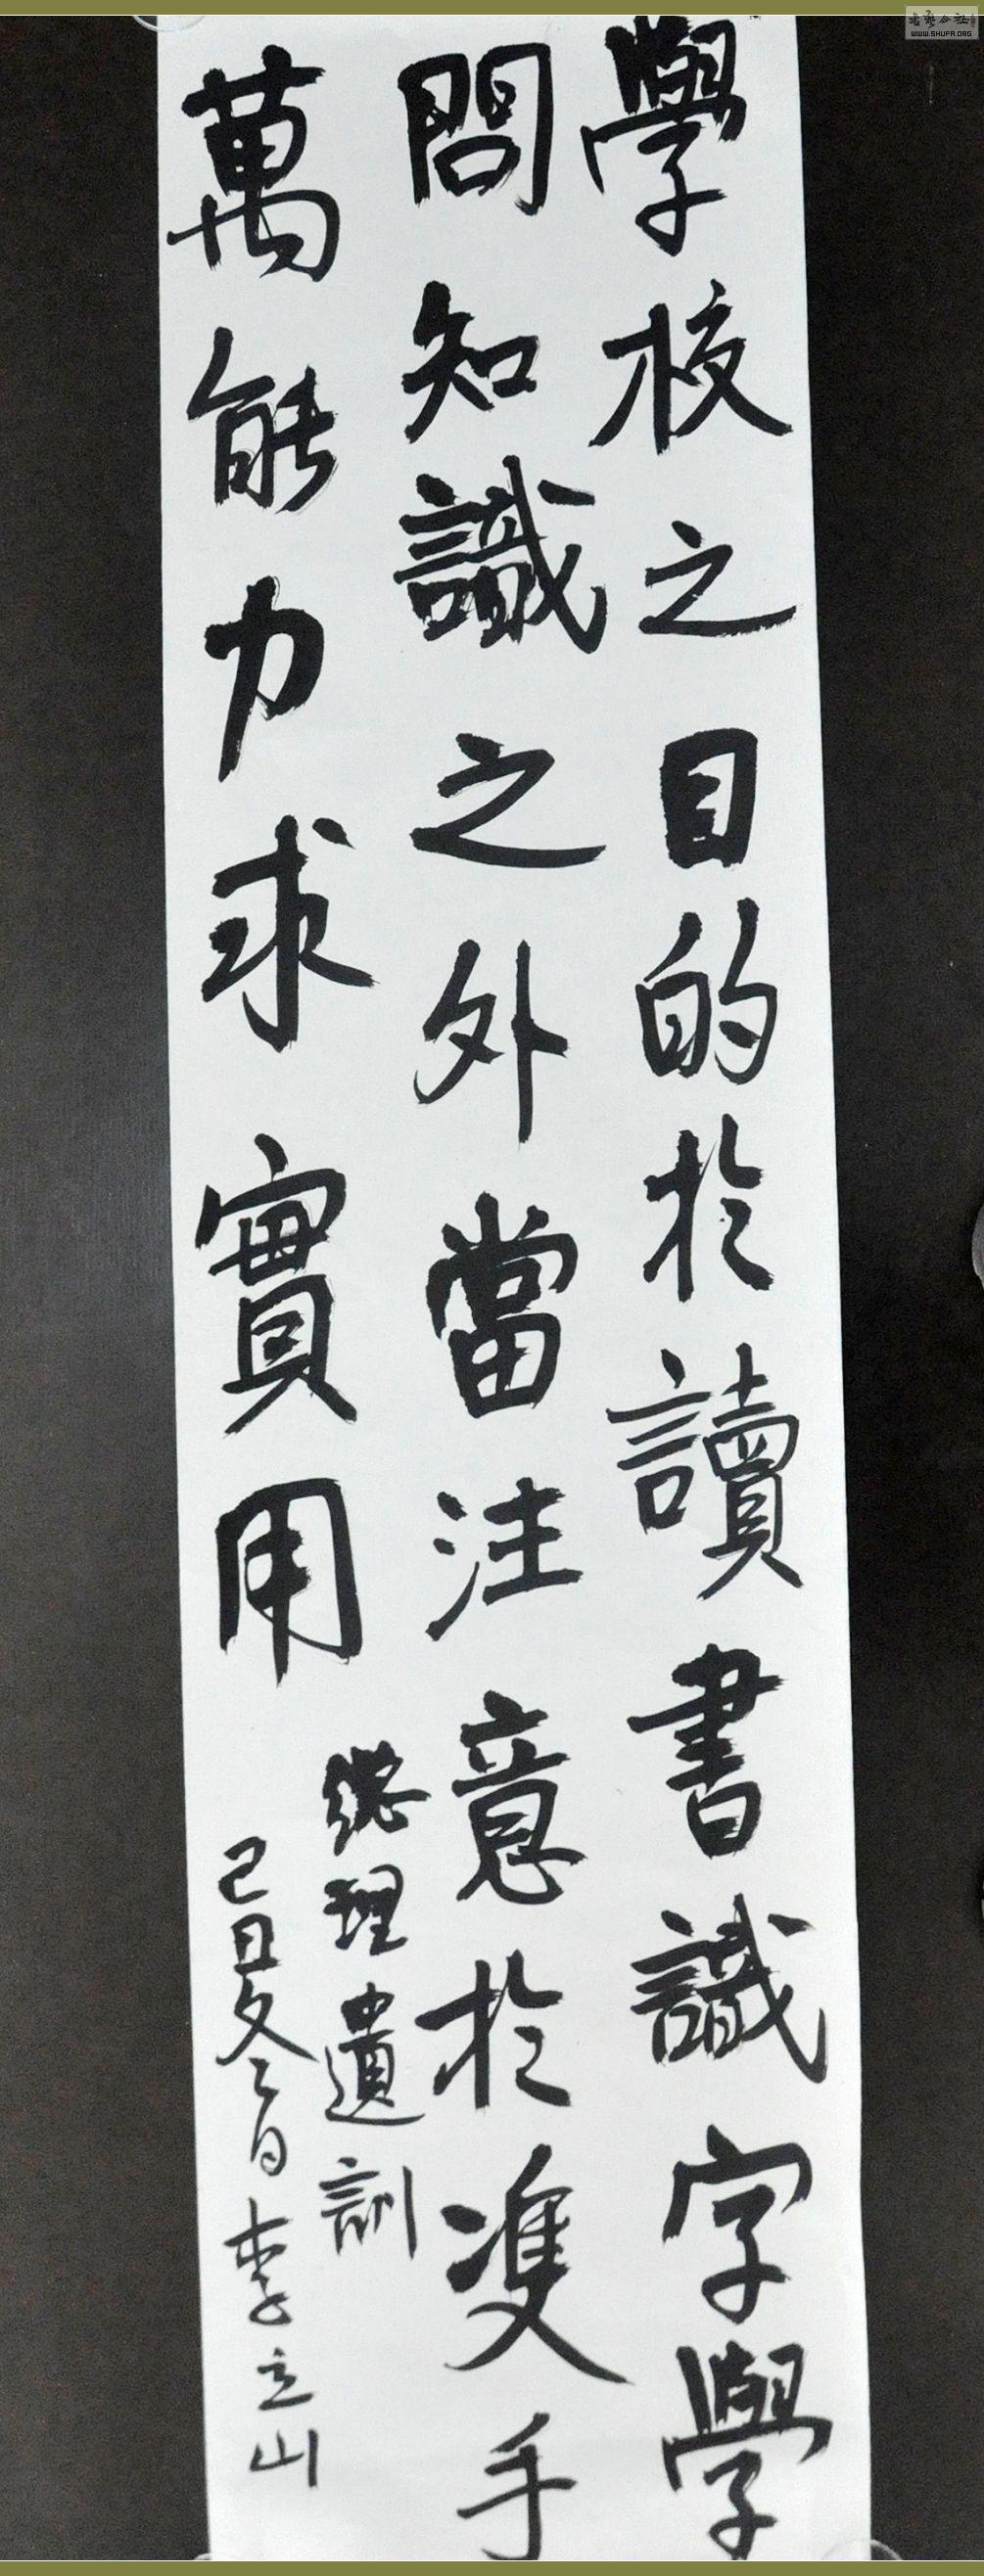 學校之目的於讀書識字學
問知識之外當注意於雙手
萬能力求實用
總理遺訓
己丑冬月李立山
WWW.SHUFA.ORG